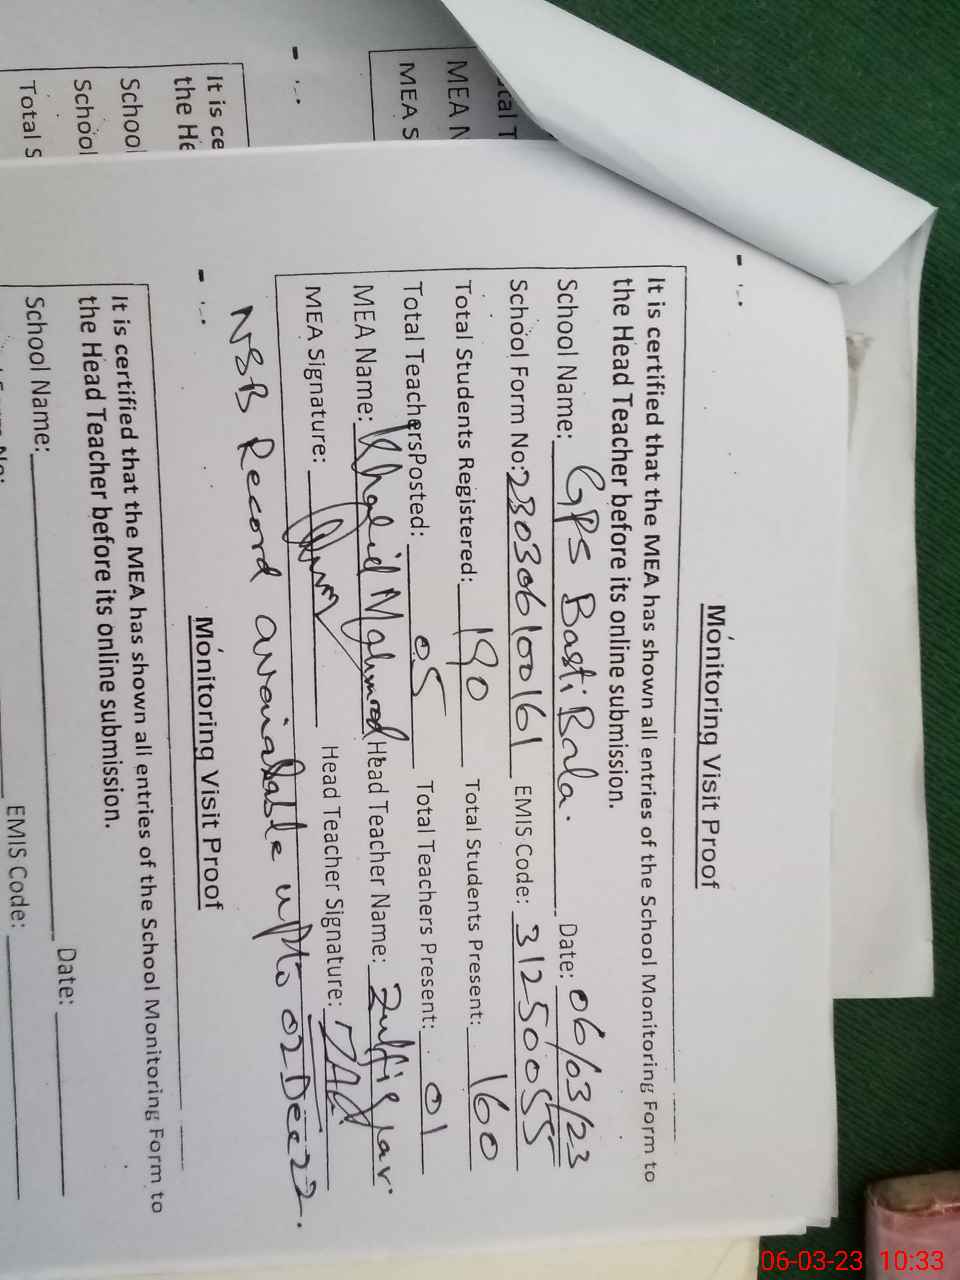 Total T
MEA N
MEA S
It is ce
the He
School
School
Total S
Monitoring Visit Proof
It is certified that the MEA has shown all entries of the School Monitoring Form to
the Head Teacher before its online submission.
School Name: GPS Basti Bala. Date: 06/03/23
School Form No: 230306100161 EMIS Code: 31250055
Total Students Registered: 190 Total Students Present: 160
Total TeachersPosted: 05 Total Teachers Present: 01
MEA Name: Khalid Mahmood Head Teacher Name: Zulfiqar.
MEA Signature: Head Teacher Signature:
NSB Record avaialable upto 02 Dec 22.
Monitoring Visit Proof
It is certified that the MEA has shown all entries of the School Monitoring Form to
the Head Teacher before its online submission.
School Name: Date:
EMIS Code:
06-03-23 10:33